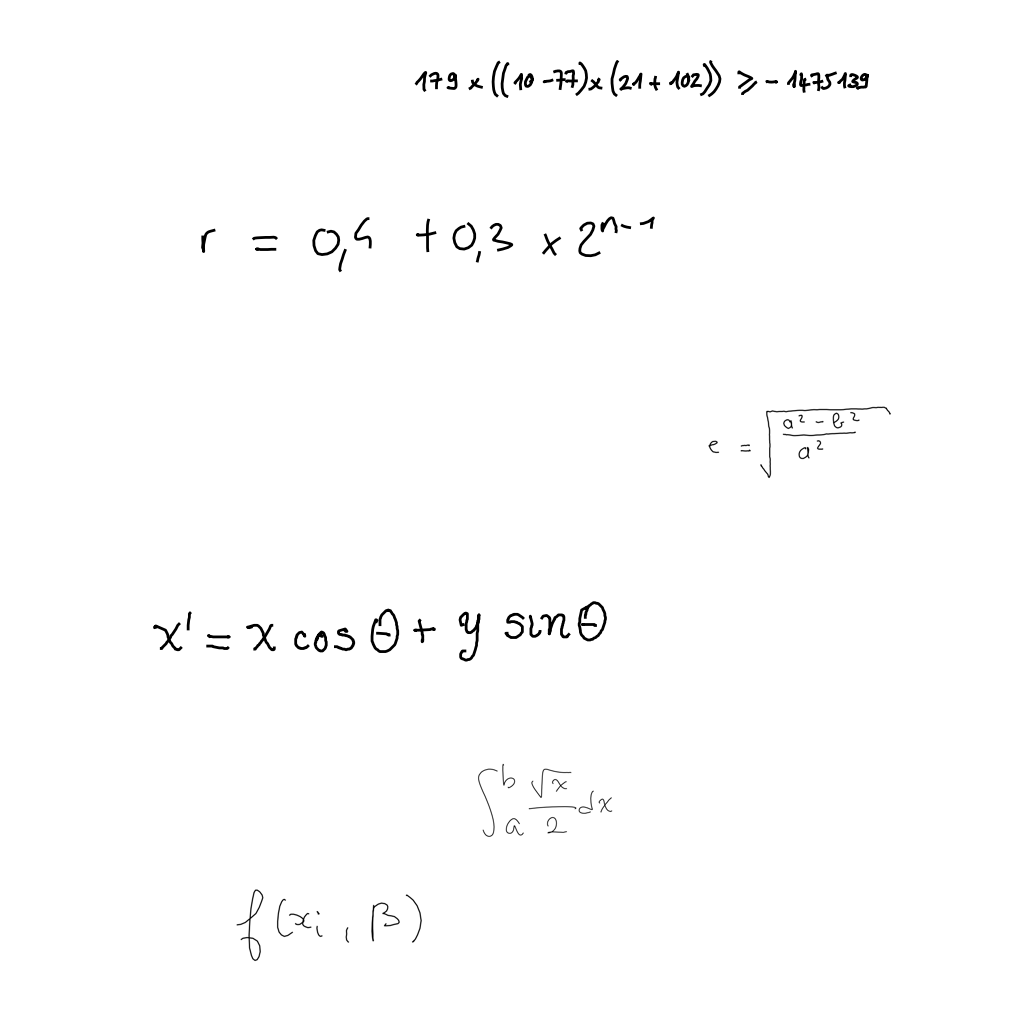 179 × ((10 - 77) × (21 + 102)) ⩾ - 1475139
r = 0,4 + 0,3 × 2^{n-1}
e = \sqrt{\frac{a^2 - b^2}{a^2}}
x' = x cos θ + y sin θ
\int_a^b \frac{\sqrt{x}}{2} dx
f(x_i, β)